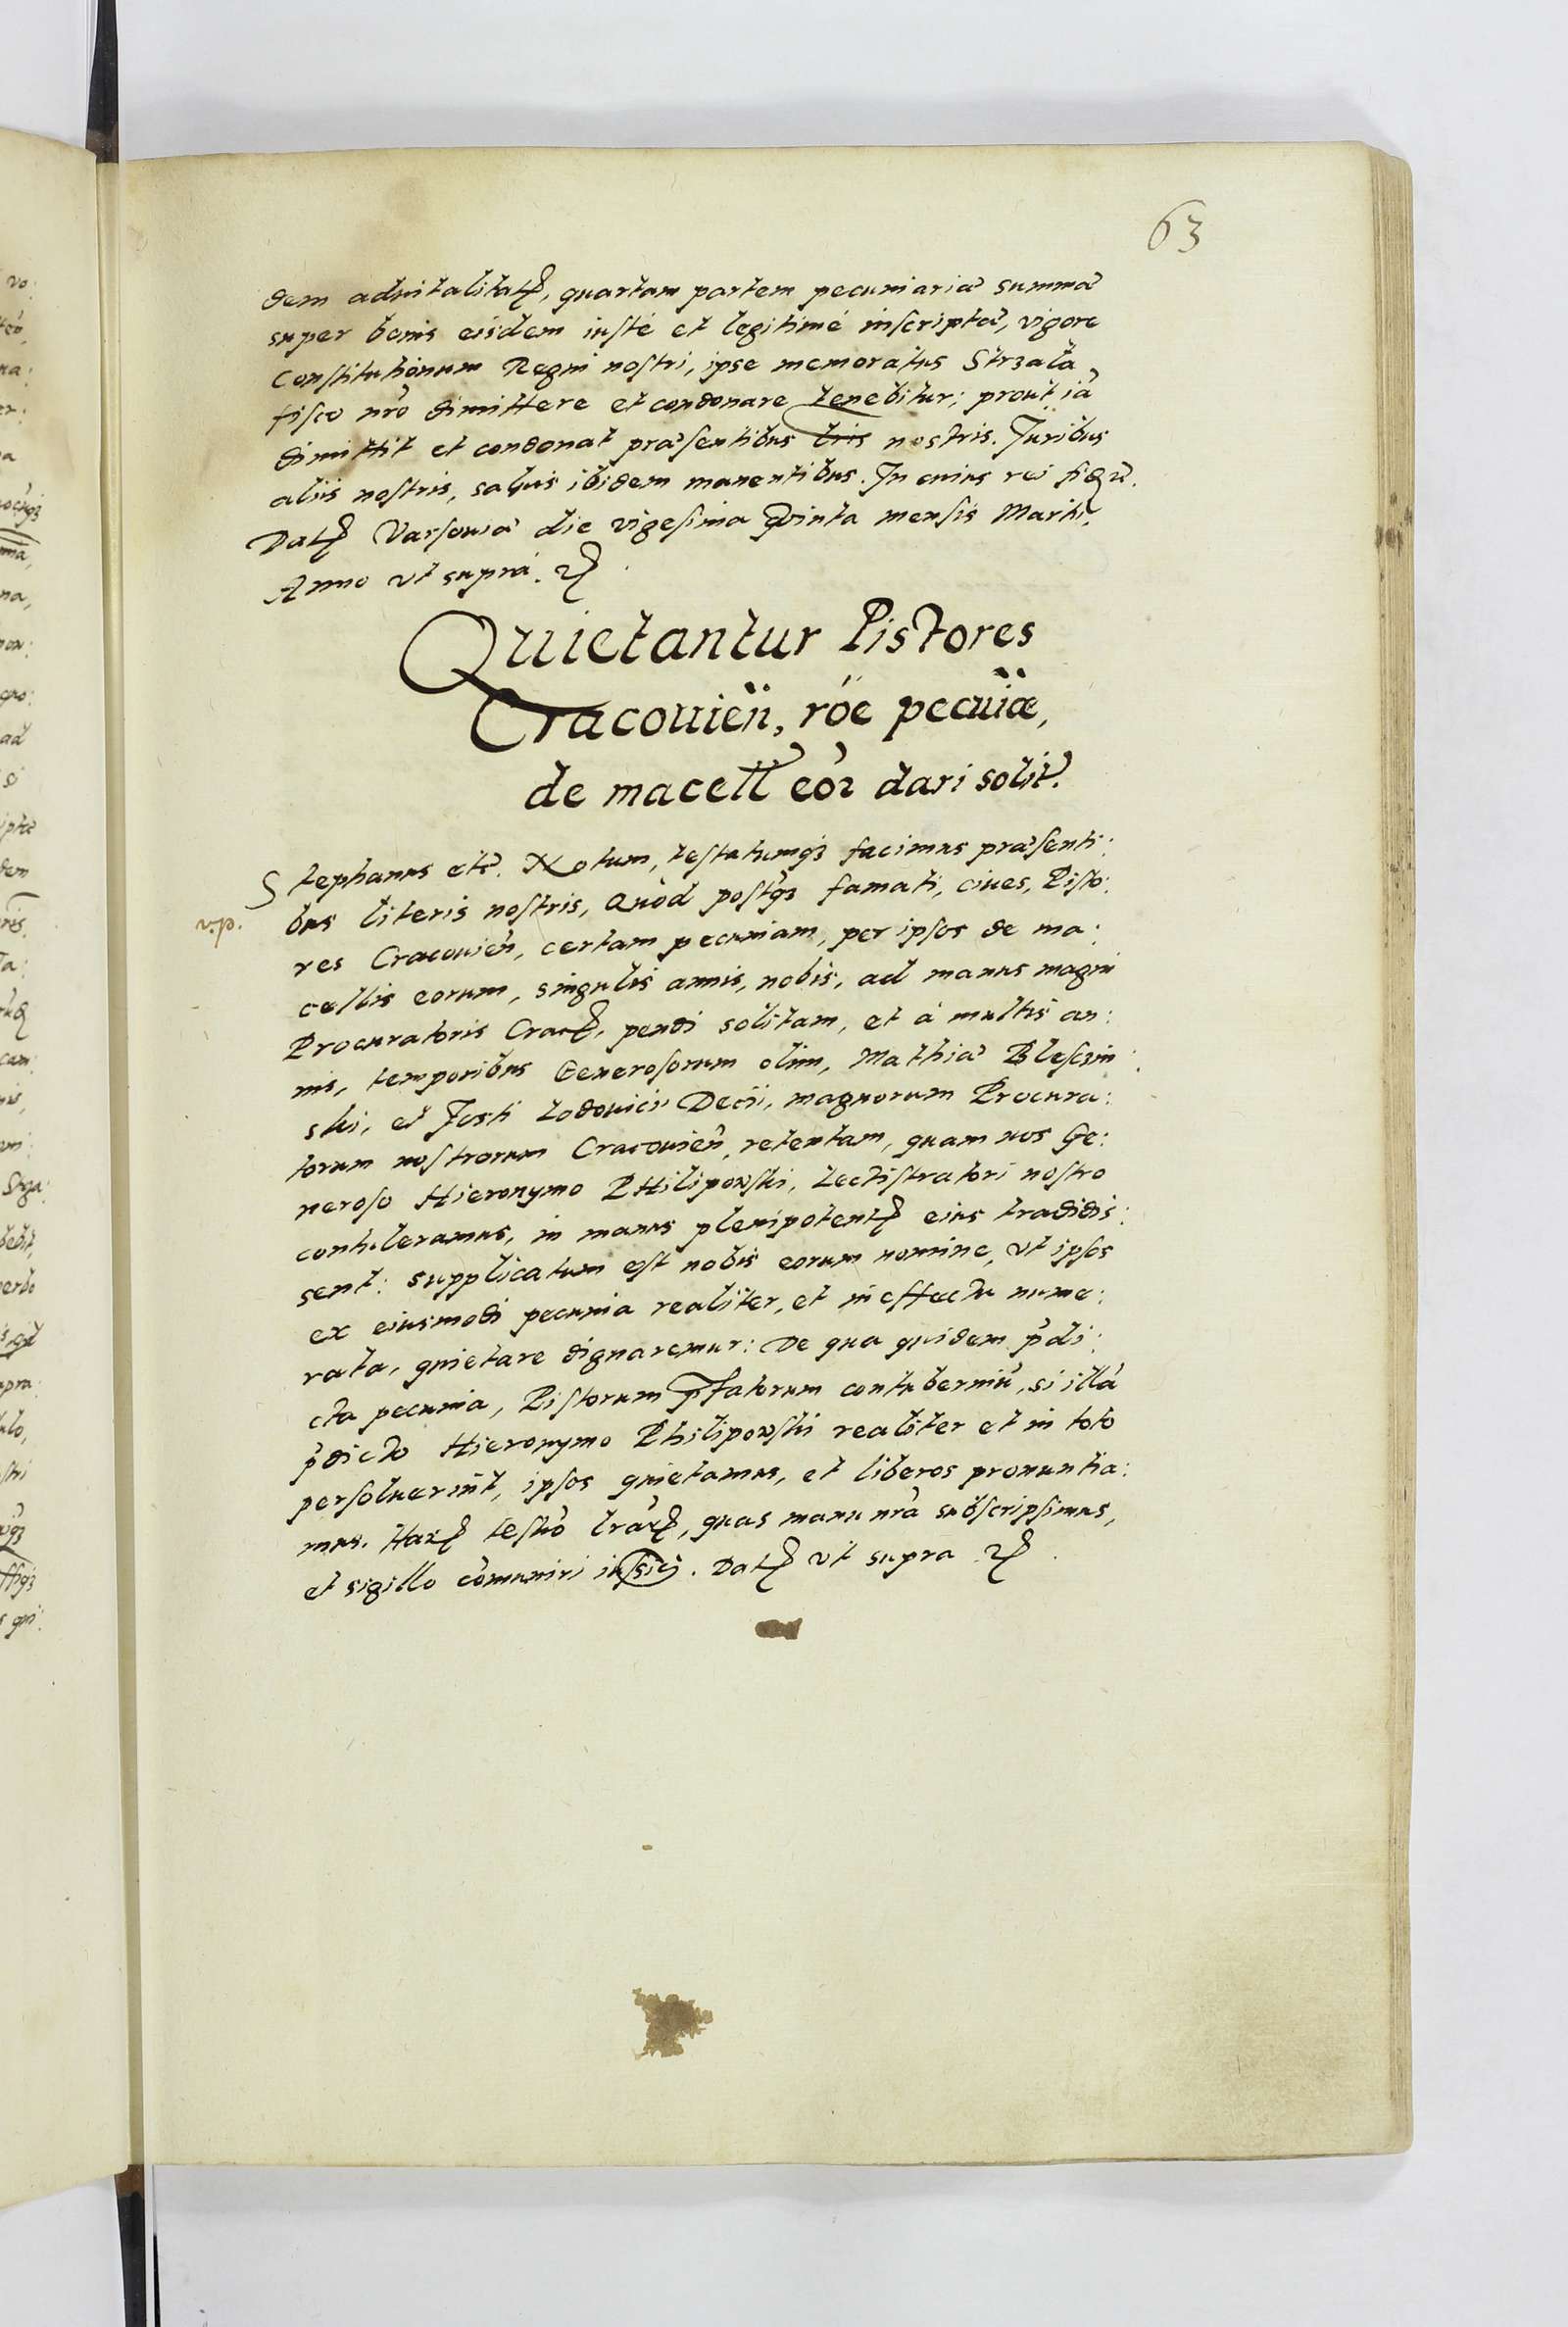 63
dem aduitalitatꝭ, quartam partem pecuniariæ summæ
super bonis eisdem iusté et legitimé inscriptæ, vigore
Constitutionum Regni nostri, ipse memoratus Strzała
fisco nrõ dimittere et condonare tenebitur; prout iã
dimittit et condonat præsentibus lris nostris. Juribus
aliis nostris, saluis ibidem manentibus. In cuius rei fidẽ.
Datꝭ Varsouiæ die vigesima Quinta mensis Martii,
Anno vt suprá. ꝛꝭ
Quietantur Pistores
Cracouieñ, rõe pecuiæ,
de macell eoꝛ dari solit.
Stephanus etc. Notum, testatumqꝫ facimus præsenti:
v.p.
bus literis nostris, Quòd postqꝫ famati, ciues, Pisto:
res Cracouieñ, certam pecuniam, per ipsos de ma:
cellis eorum, singulis annis, nobis, ad manus magni
Procuratoris Cracꝭ, pendi solitam, et à multis an:
nis, temporibus Generosorum olim, Mathiæ Plesczin:
ski, et Josti Lodouici Decii, magnorum Procura:
torum nostrorum Cracouieñ, retentam, quam nos Ge:
neroso Hieronymo PHilipowski, Lectistratori nostro
contuleramus, in manus plenipotentꝭ eius tradidis:
sent: supplicatum est nobis eorum nomine, vt ipsos
ex eiusmodi pecunia realiter, et in effectu nume:
rata, quietare dignaremur: De qua quidem p̃di:
cta pecunia, Pistorum p̃fatorum contuberniũ, si illã
p̃dicto Hieronymo Philipowski realiter et in toto
persoluerint, ipsos quietamus, et liberos pronuntia:
mus. Harꝭ testiõ lrarꝭ, quas manu nrã subscripsimus,
et sigillo cõmuniri iussiꝯ. Datꝭ vt supra ꝛꝭ.